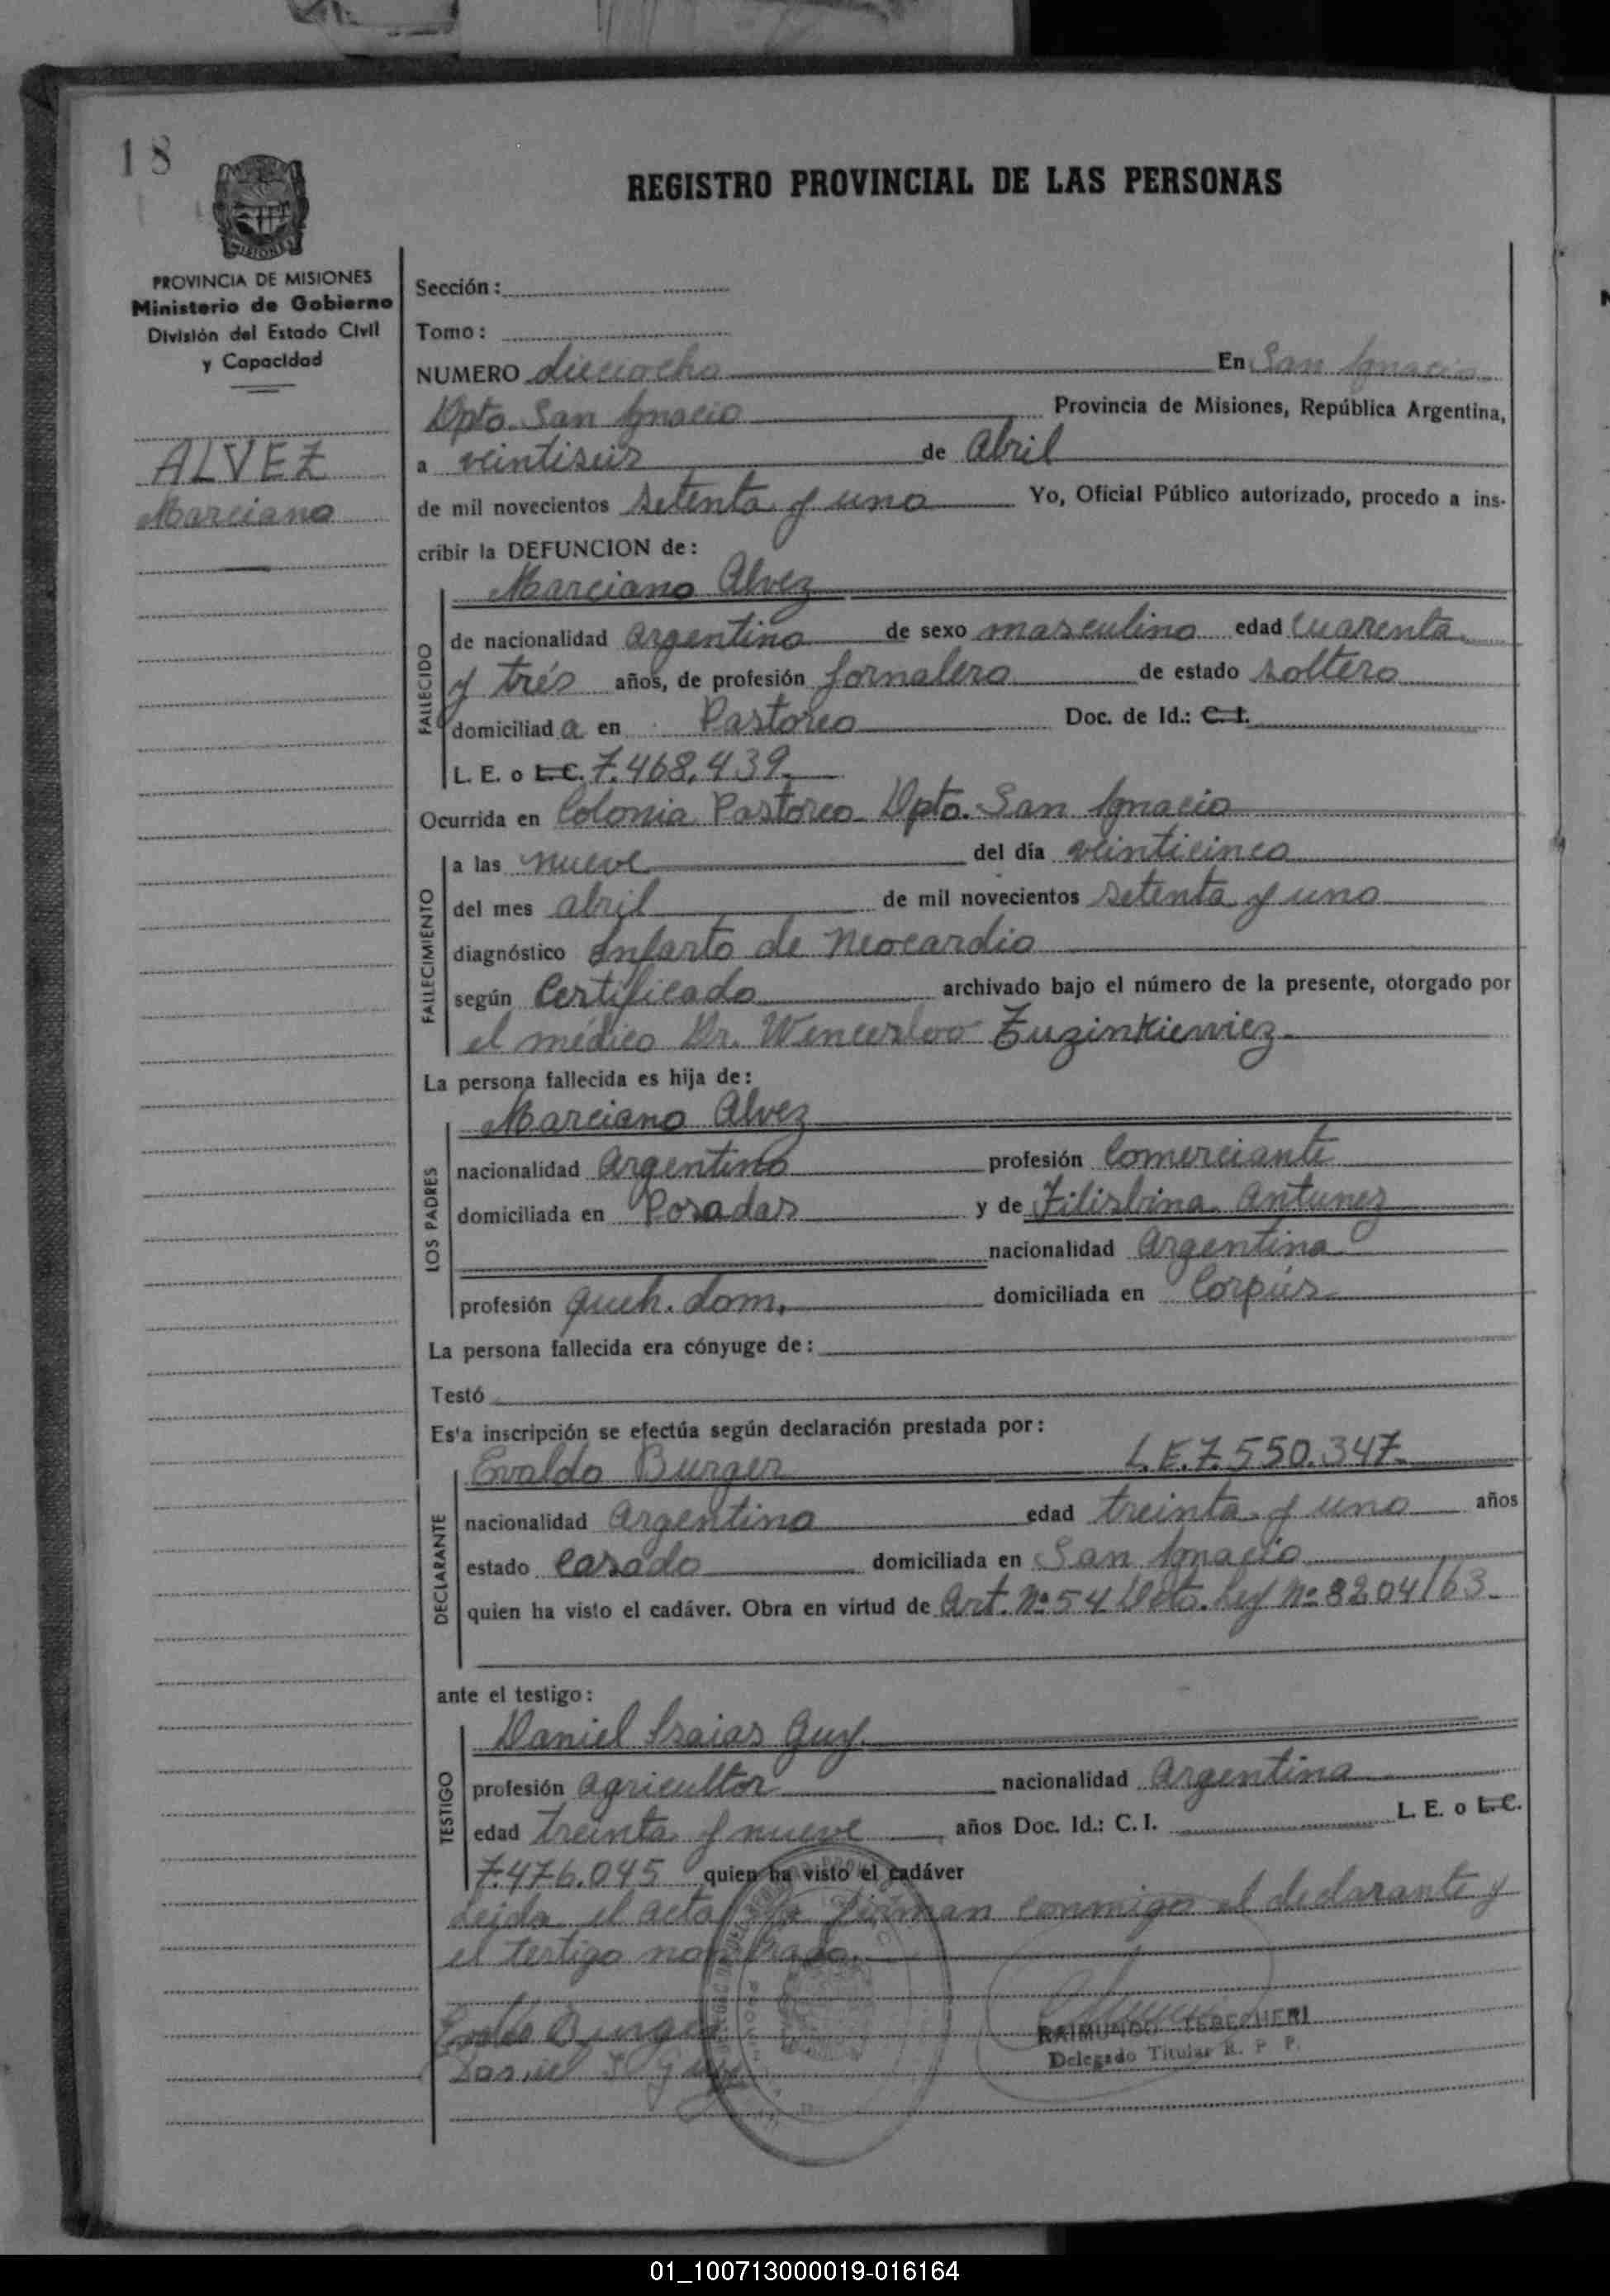 18
MISIONES
REGISTRO PROVINCIAL DE LAS PERSONAS
PROVINCIA DE MISIONES
Ministerio de Gobierno
División del Estado Civil
y Capacidad
ALVEZ
Marciano
Sección :
Tomo :
NUMERO dieciocho En San Ignacio
Dpto. San Ignacio Provincia de Misiones, República Argentina,
a veintiseis de Abril
de mil novecientos setenta y uno Yo, Oficial Público autorizado, procedo a ins-
cribir la DEFUNCION de :
Marciano Alvez
FALLECIDO
de nacionalidad argentino de sexo masculino edad cuarenta
y trés años, de profesión jornalero de estado soltero
domiciliad a en Pastoreo Doc. de Id.: C. I.
L. E. o L. C. 7.468.439
Ocurrida en Colonia Pastoreo Dpto. San Ignacio
FALLECIMIENTO
a las nueve del día veinticinco
del mes abril de mil novecientos setenta y uno
diagnóstico Infarto de Neocardio
según Certificado archivado bajo el número de la presente, otorgado por
el médico Dr. Wenceslao Zuzinkiewicz
La persona fallecida es hija de :
Marciano Alvez
LOS PADRES
nacionalidad argentino profesión Comerciante
domiciliada en Posadas y de Filisbina Antunez
nacionalidad argentina
profesión queh. dom. domiciliada en Corpús
La persona fallecida era cónyuge de :
Testó
Es'a inscripción se efectúa según declaración prestada por :
Evaldo Burger L.E.7.550.347
DECLARANTE
nacionalidad argentino edad treinta y uno años
estado casado domiciliada en San Ignacio
quien ha visto el cadáver. Obra en virtud de Art. Nº 54 Dcto. Ley Nº 8204/63
ante el testigo :
Daniel Isaias Guy
TESTIGO
profesión agricultor nacionalidad argentina
edad treinta y nueve años Doc. Id.: C. I. L. E. o L. C.
7.476.045 quien ha visto el cadáver
Leída el acta firman conmigo el declarante y
el testigo nombrado.
Evaldo Burger
Daniel I Guy
RAIMUNDO TEBECHERI
Delegado Titular R. P. P.
01_100713000019-016164